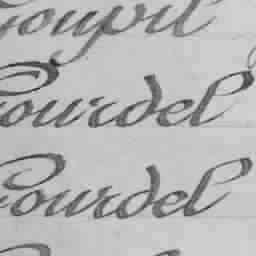 Goupil
Gourdel
Gourdel